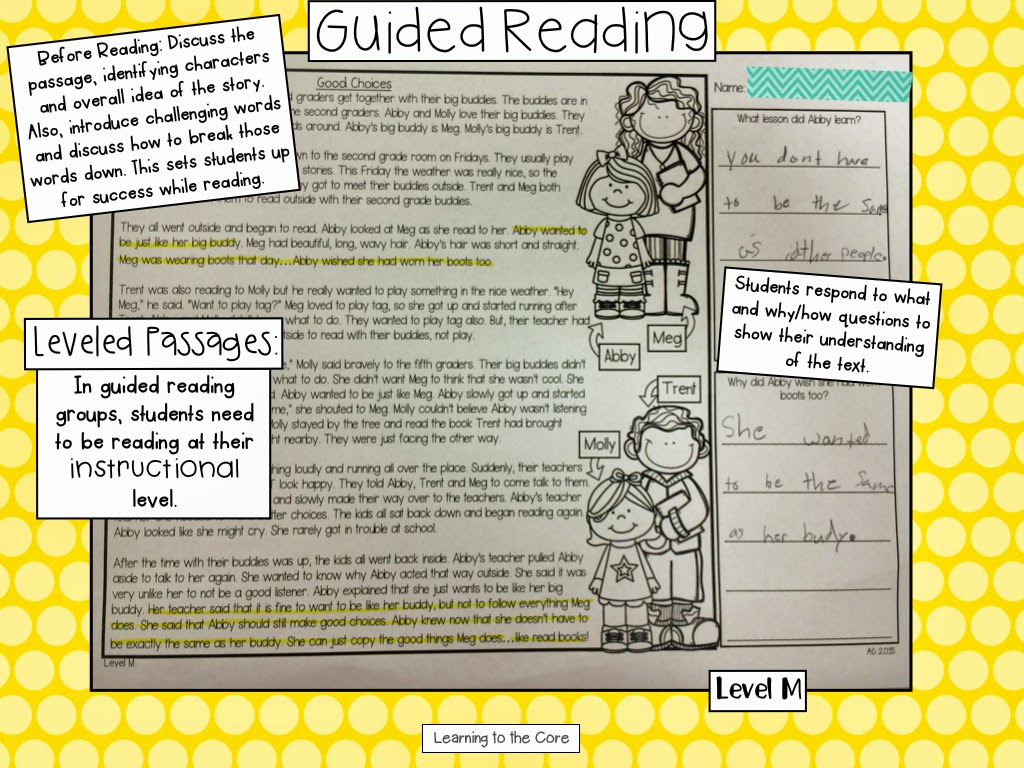 Guided Reading
Before Reading: Discuss the
passage, identifying characters
and overall idea of the story.
Also, introduce challenging words
and discuss how to break those
words down. This sets students up
for success while reading.
Good Choices
graders get together with their big buddies. The buddies are in
second graders. Abby and Molly love their big buddies. They
around. Abby's big buddy is Meg. Molly's big buddy is Trent.
to the second grade room on Fridays. They usually play
stories. This Friday the weather was really nice, so the
got to meet their buddies outside. Trent and Meg both
to read outside with their second grade buddies.
They all went outside and began to read. Abby looked at Meg as she read to her. Abby wanted to
be just like her big buddy. Meg had beautiful, long, wavy hair. Abby's hair was short and straight.
Meg was wearing boots that day...Abby wished she had worn her boots too.
Trent was also reading to Molly but he really wanted to play something in the nice weather. "Hey
Meg," he said. "Want to play tag?" Meg loved to play tag, so she got up and started running after
what to do. They wanted to play tag also. But, their teacher had
to read with their buddies, not play.
Molly said bravely to the fifth graders. Their big buddies didn't
what to do. She didn't want Meg to think that she wasn't cool. She
Abby wanted to be just like Meg. Abby slowly got up and started
she shouted to Meg. Molly couldn't believe Abby wasn't listening
stayed by the tree and read the book Trent had brought
nearby. They were just facing the other way.
loudly and running all over the place. Suddenly, their teachers
look happy. They told Abby, Trent and Meg to come talk to them.
and slowly made their way over to the teachers. Abby's teacher
choices. The kids all sat back down and began reading again.
Abby looked like she might cry. She rarely got in trouble at school.
After the time with their buddies was up, the kids all went back inside. Abby's teacher pulled Abby
aside to talk to her again. She wanted to know why Abby acted that way outside. She said it was
very unlike her to not be a good listener. Abby explained that she just wants to be like her big
buddy. Her teacher said that it is fine to want to be like her buddy, but not to follow everything Meg
does. She said that Abby should still make good choices. Abby knew now that she doesn't have to
be exactly the same as her buddy. She can just copy the good things Meg does...like read books!
Level M
Abby
Meg
Trent
Molly
Name:
What lesson did Abby learn?
you dont have
to be the same
as other people.
Students respond to what
and why/how questions to
show their understanding
of the text.
Why did Abby wish she had
boots too?
She wanted
to be the same
as her budy.
AG 2015
Leveled Passages:
In guided reading
groups, students need
to be reading at their
instructional
level.
Level M
Learning to the Core